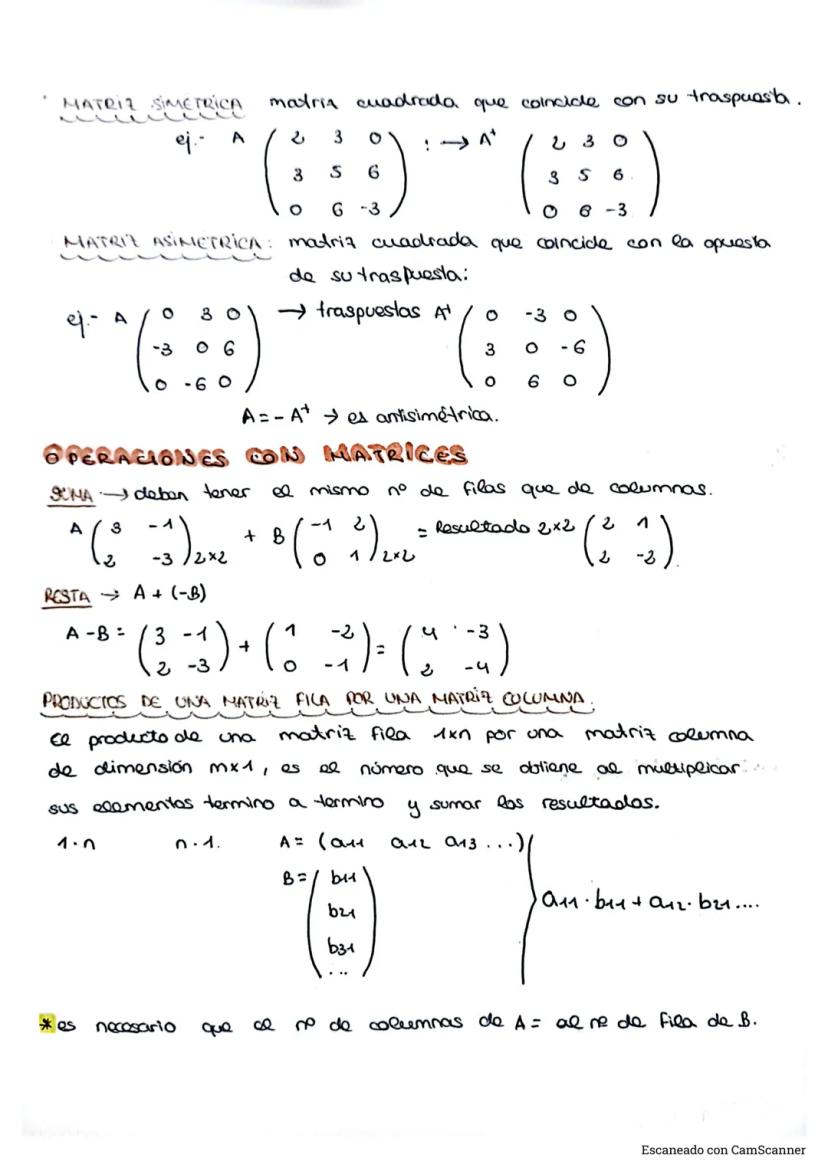 · MATRIZ SIMÉTRICA matriz cuadrada que coincide con su traspuesta.
ej.- A ( 2 3 0 ) : → Aᵗ ( 2 3 0 )
3 5 6 3 5 6
0 6 -3 0 6 -3
MATRIZ ASIMETRICA: matriz cuadrada que coincide con la opuesta
de su traspuesta:
ej.- A ( 0 3 0 ) → traspuestas Aᵗ ( 0 -3 0 )
-3 0 6 3 0 -6
0 -6 0 0 6 0
A = - Aᵗ → es antisimétrica.
OPERACIONES CON MATRICES
SUMA → deben tener el mismo nº de filas que de columnas.
A ( 3 -1 ) + B ( -1 2 ) = Resultado 2x2 ( 2 1 )
2 -3 2x2 0 1 2x2 2 -2
RESTA → A + (-B)
A - B = ( 3 -1 ) + ( 1 -2 ) = ( 4 -3 )
2 -3 0 -1 2 -4
PRODUCTOS DE UNA MATRIZ FILA POR UNA MATRIZ COLUMNA.
el producto de una matriz fila 1xn por una matriz columna
de dimensión mx1, es el número que se obtiene al multiplicar
sus elementos termino a termino y sumar los resultados.
1·n n·1. A = (a11 a12 a13 ...)
B = ( b11 )
b21
b31
...
a11 · b11 + a12 · b21 ....
* es necesario que el nº de columnas de A = al nº de fila de B.
Escaneado con CamScanner